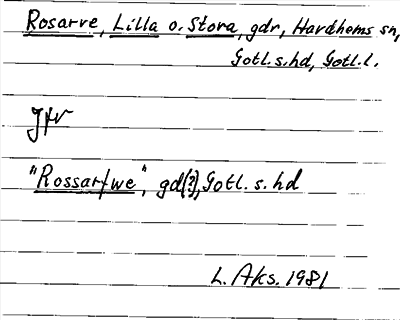 Rosarve, Lilla o. Stora, gdr, Hardhems sn,
Gotl. s. hd, Gotl. l.
Jfr
"Rossarfwe", gd(?), Gotl. s. hd
L. Aks. 1981